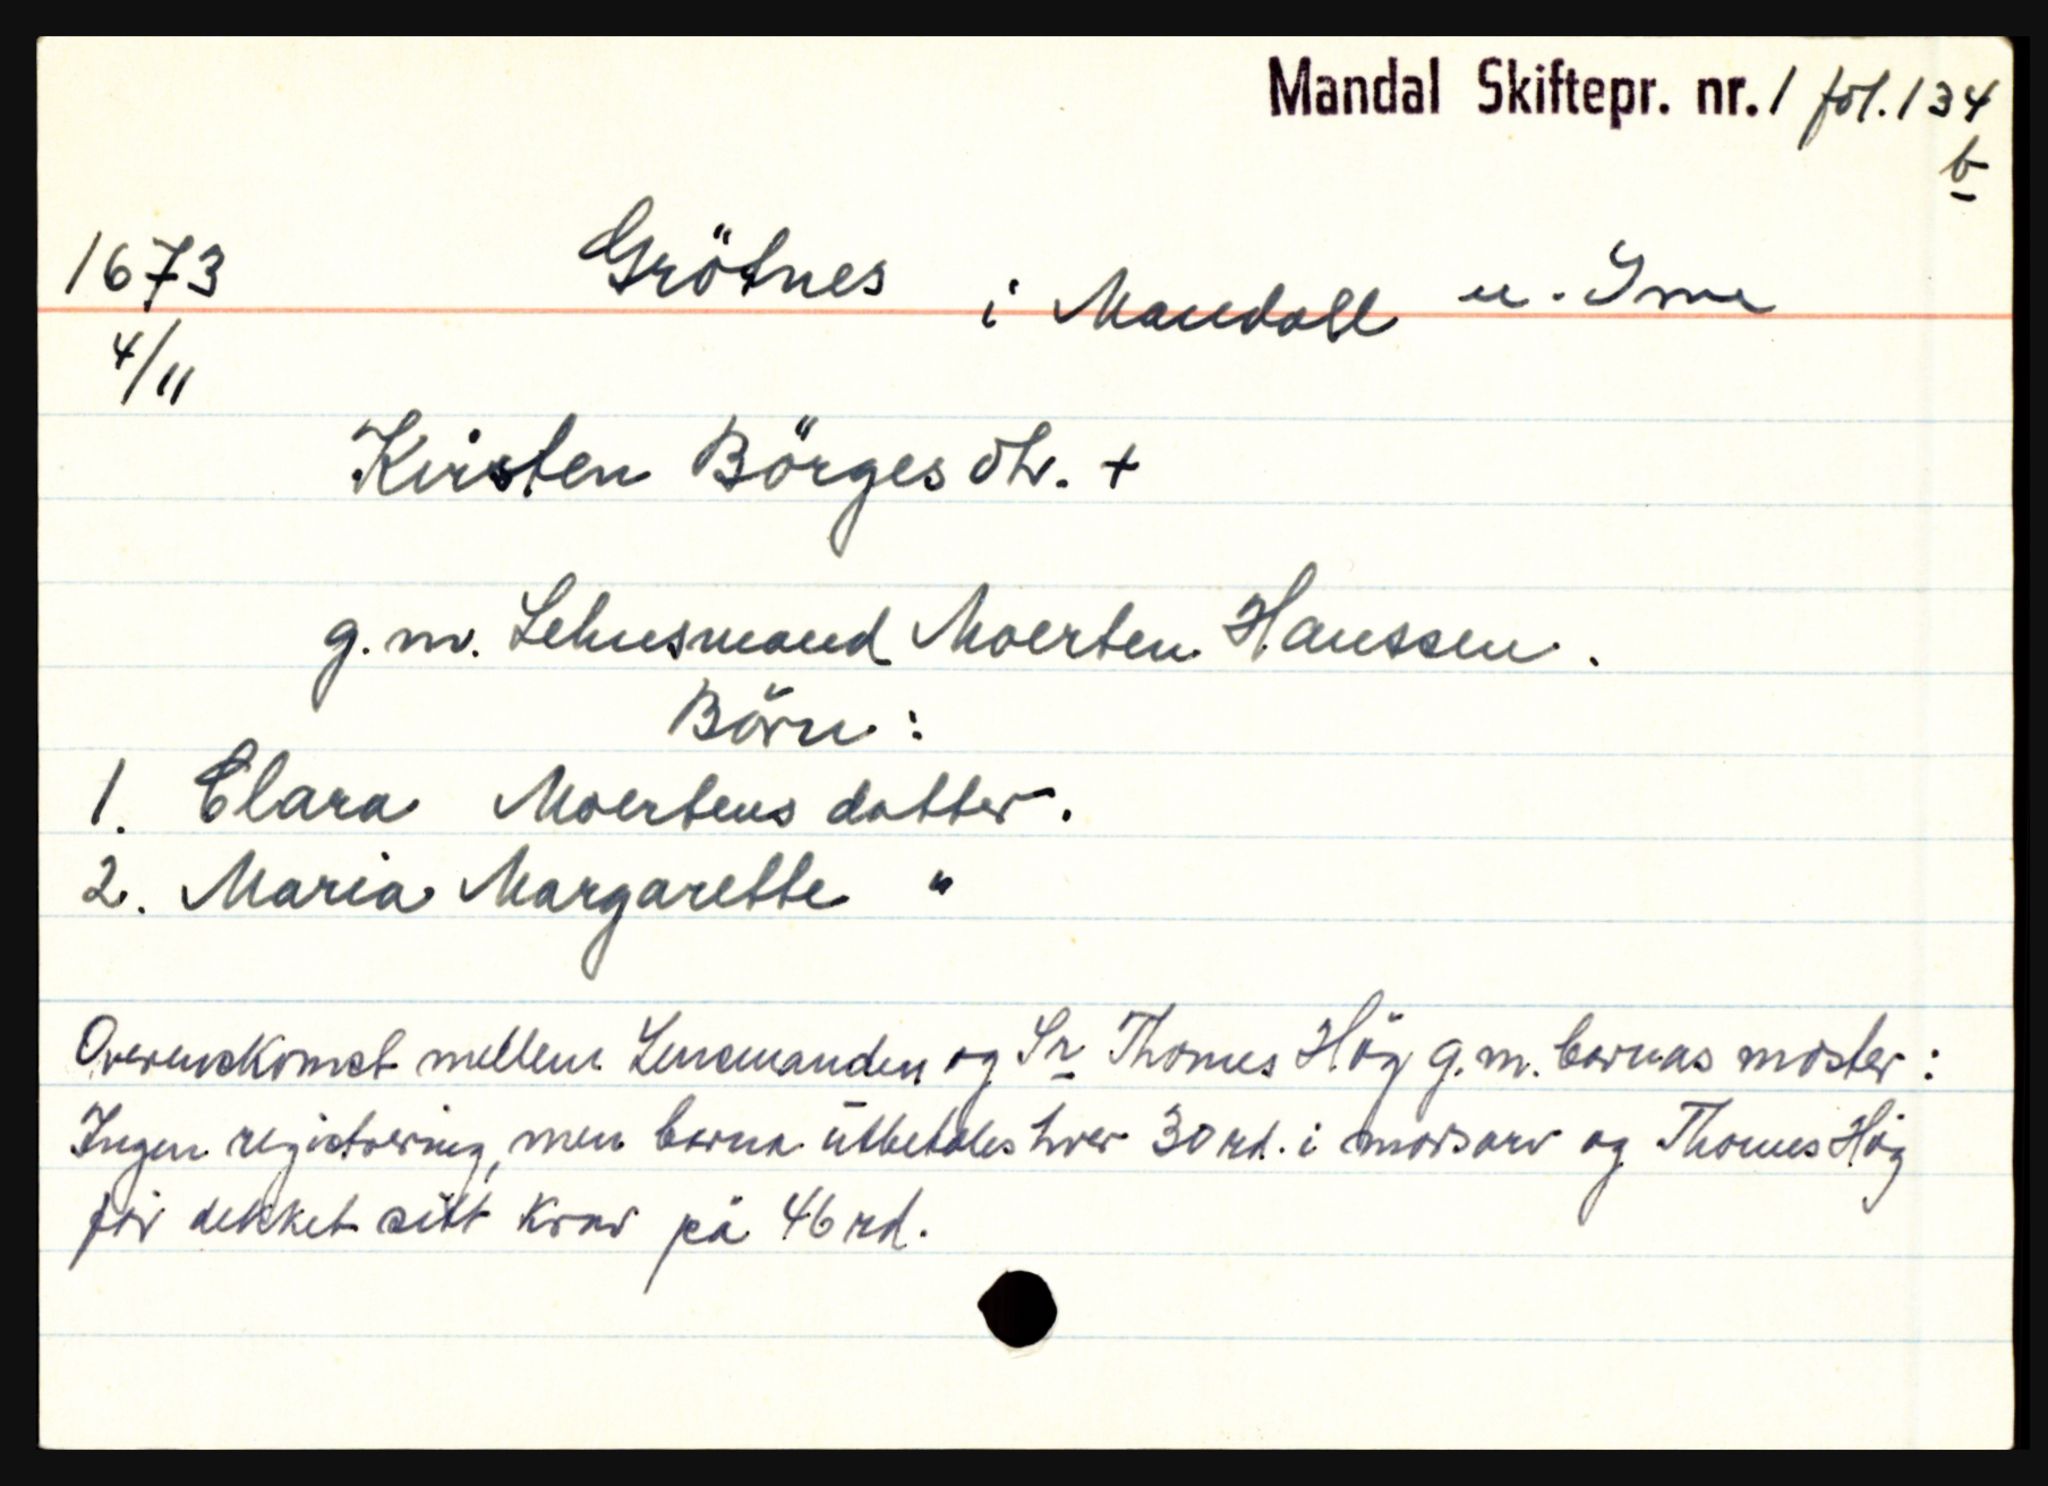 Mandal Skiftepr. nr. 1 fol. 134
b
1673 Grötnes i Mandall u. Ime
4/11
Kirsten Börges dtr. +
g. m. Lehnsmand Moerten Hanssen.
Börn:
1. Clara Moertens datter.
2. Maria Margarette "
Overenskomst mellem Lensmanden og Sr Thomes Hög g. m. barnas moster:
Ingen registrering, men barna utbetales hver 30 rd. i morsarv og Thomes Hög
får dekket sitt krav på 46 rd.